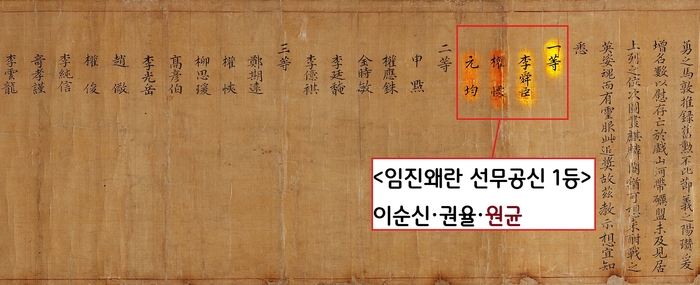 勇之馬敦推錄舊勳不比御義之陽瓚爰
增名數以慰存亡於戲山河帶礪盟未及見居
上列之依次圖畫麒麟閣猶可想未耐戰之
英姿魂而有靈服此追奬故玆敎示想宜知
悉
一等
李舜臣
權慄
元均
二等
申點
權應銖
金時敏
李廷馣
李億祺
三等
鄭期遠
權悏
柳思瑗
高彦伯
李光岳
趙儆
權俊
李純信
奇孝謹
李雲龍
<임진왜란 선무공신 1등>
이순신·권율·원균